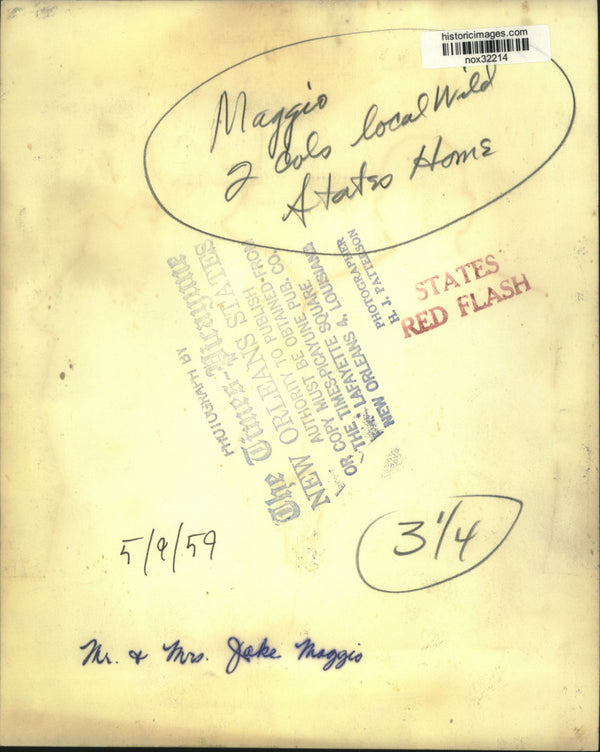 historicimages.com
nox32214
Maggio
2 cols local Wild
States Home
PHOTOGRAPH BY
The Times-Picayune
NEW ORLEANS STATES
AUTHORITY TO PUBLISH
OR COPY MUST BE OBTAINED FROM
THE TIMES-PICAYUNE PUB. CO.
LAFAYETTE SQUARE
NEW ORLEANS 4, LOUISIANA
PHOTOGRAPHER
H. J. PATTERSON
STATES
RED FLASH
5/9/59
3 1/4
Mr. & Mrs. Jake Maggio